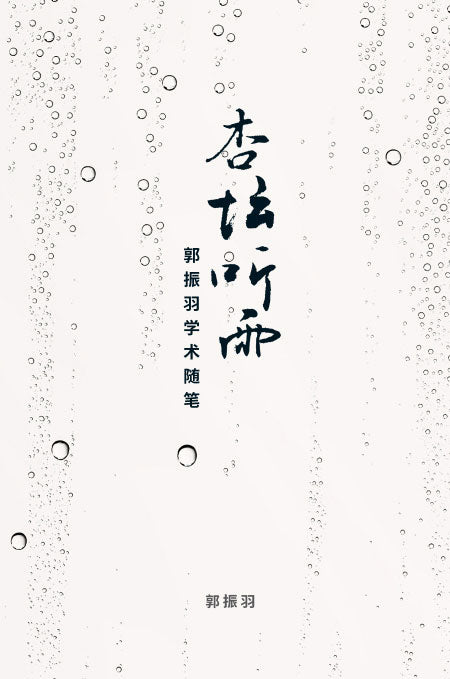 杏坛听雨
郭振羽学术随笔
郭振羽